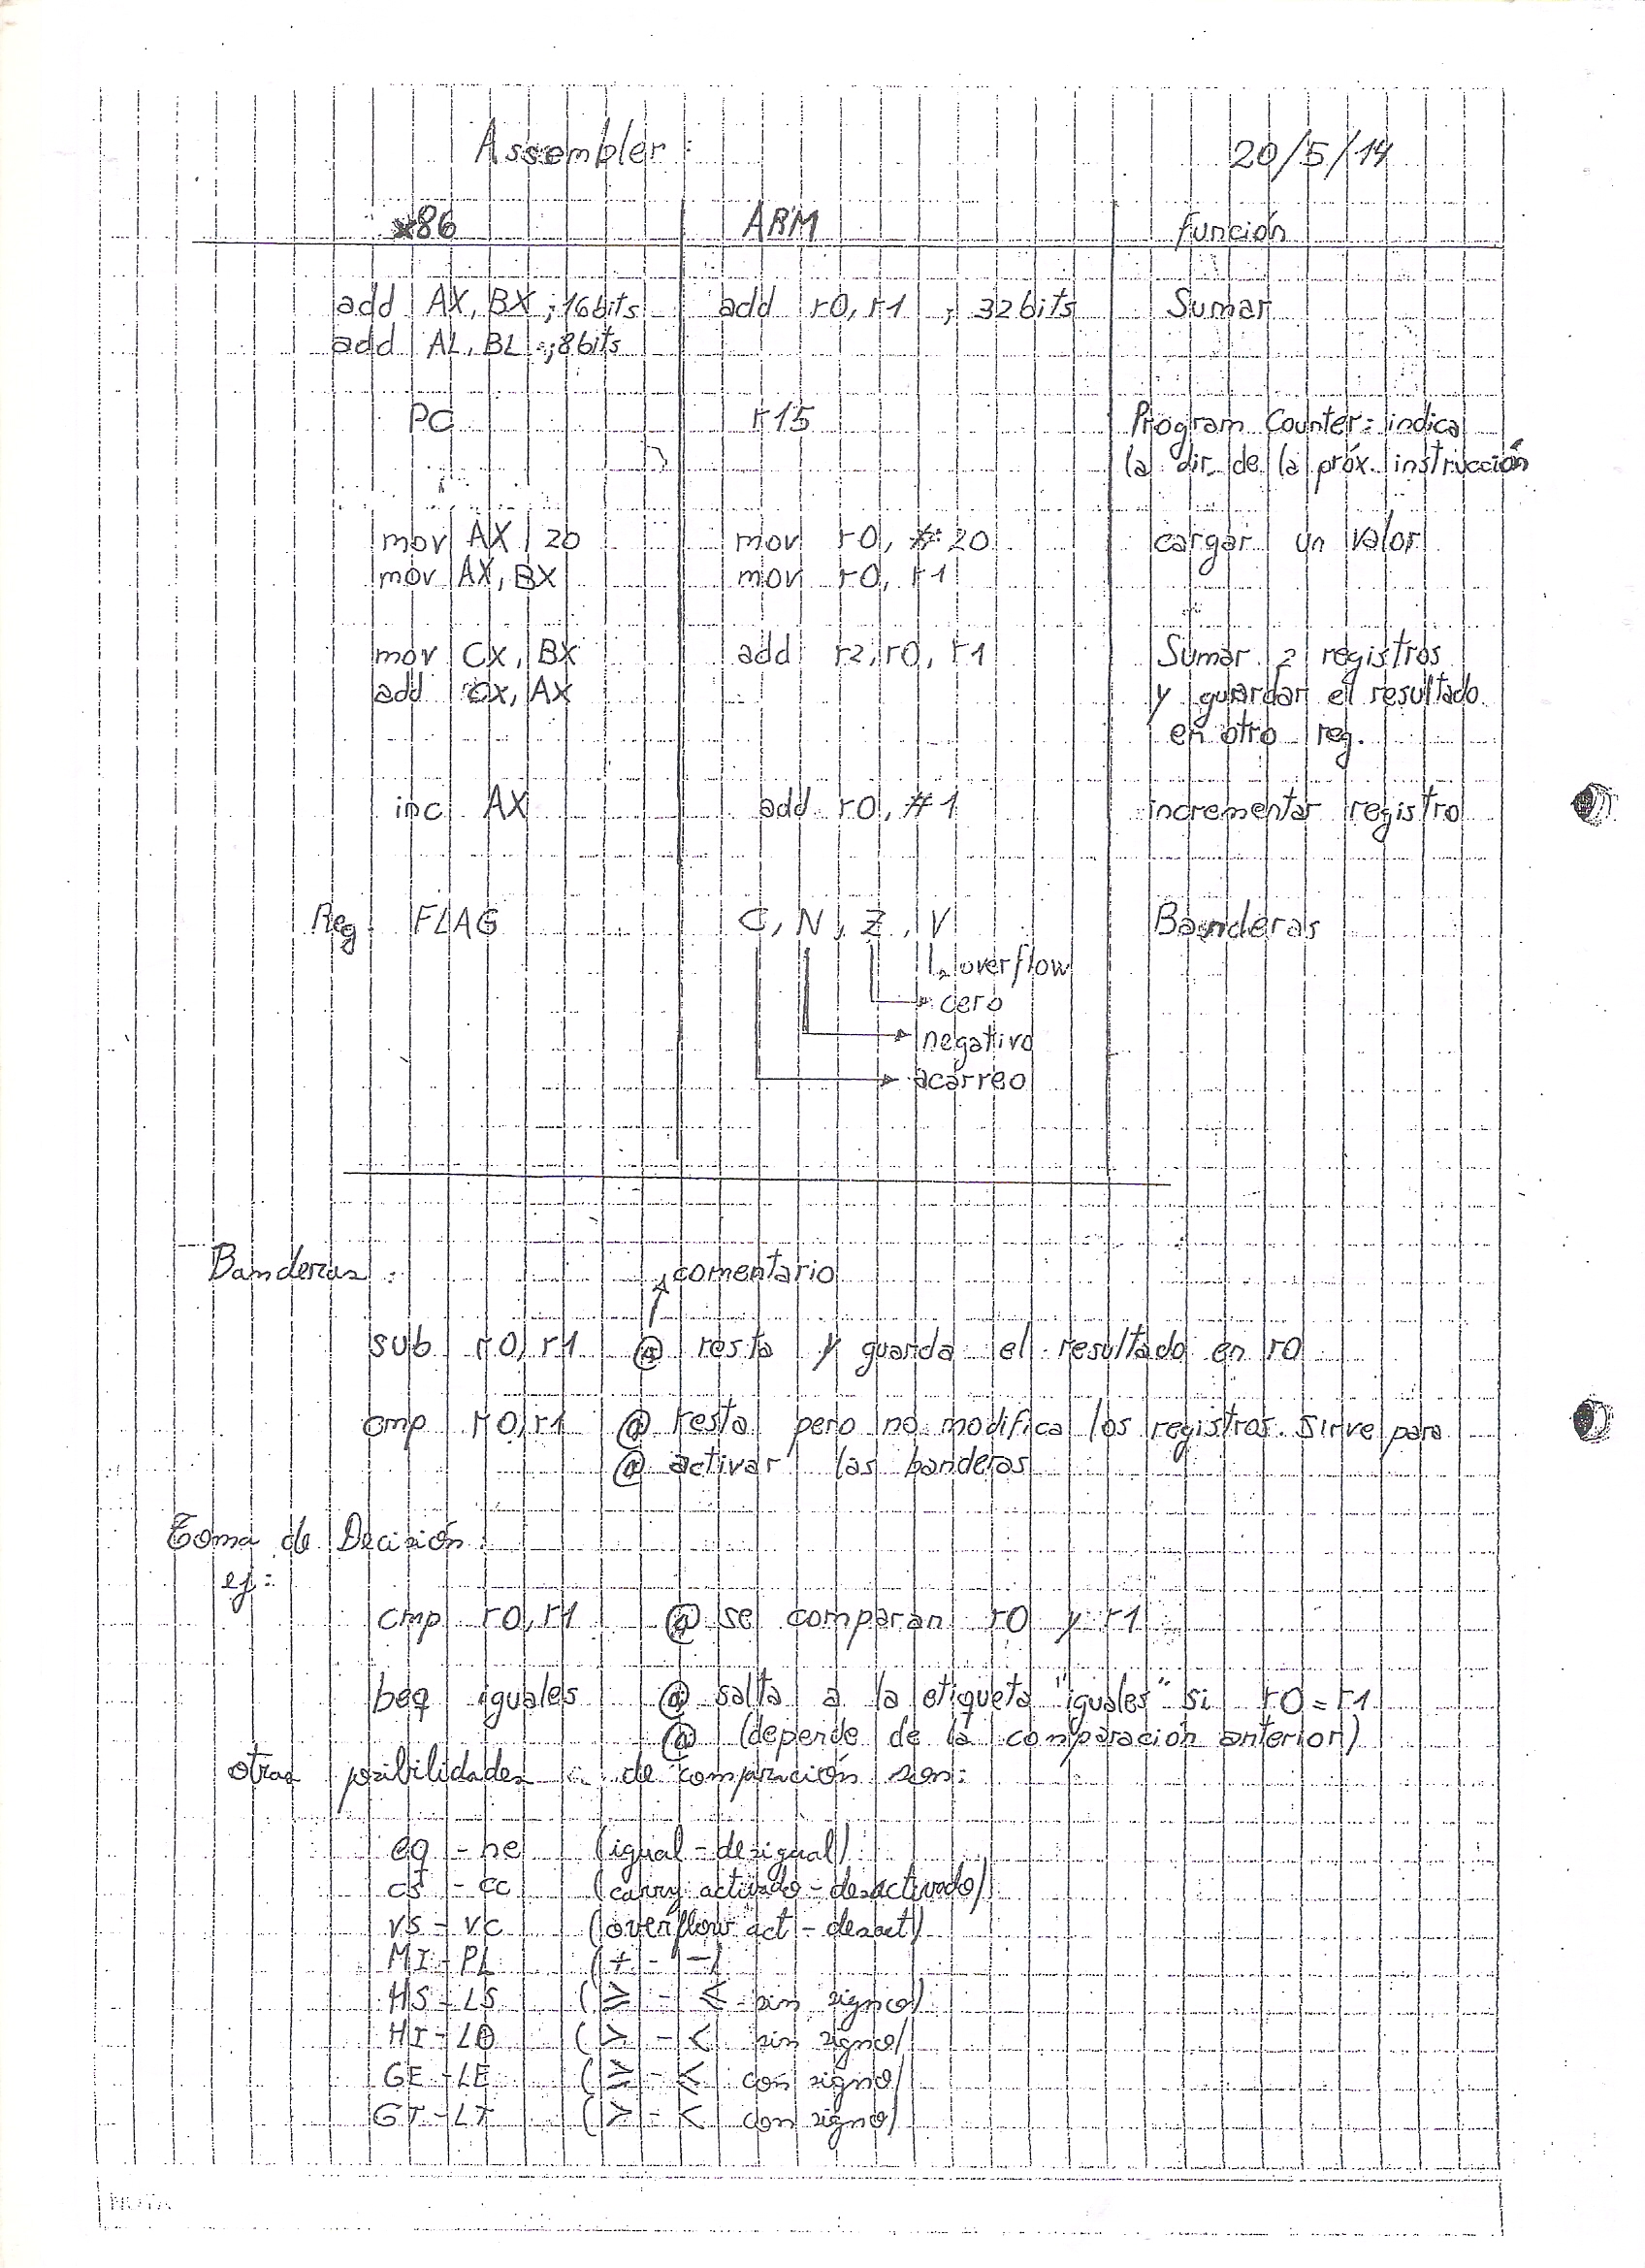 Assembler : 20/5/14
x86 ARM función
add AX, BX ; 16bits add r0, r1 ; 32bits Sumar
add AL, BL ; 8bits
PC r15 Program Counter: indica
la dir. de la próx. instrucción
mov AX 20 mov r0, #20 cargar un valor
mov AX, BX mov r0, r1
mov CX, BX add r2, r0, r1 Sumar 2 registros
add CX, AX y guardar el resultado
en otro reg.
inc AX add r0, #1 incrementar registro
Reg FLAG C, N, Z, V Banderas
overflow
cero
negativo
acarreo
Banderas : comentario
sub r0, r1 @ resta y guarda el resultado en r0
cmp r0, r1 @ resta pero no modifica los registros. Sirve para
@ activar las banderas
Toma de Decisión :
ej :
cmp r0, r1 @ se comparan r0 y r1
beq iguales @ salta a la etiqueta "iguales" si r0 = r1
@ (depende de la comparación anterior)
otras posibilidades de comparación son:
eq - ne (igual - desigual)
cs - cc (carry activado - desactivado)
VS - VC (overflow act - desact)
MI - PL (+ - -)
HS - LS (≥ - ≤ sin signo)
HI - LO (> - < sin signo)
GE - LE (≥ - ≤ con signo)
GT - LT (> - < con signo)
NOTA